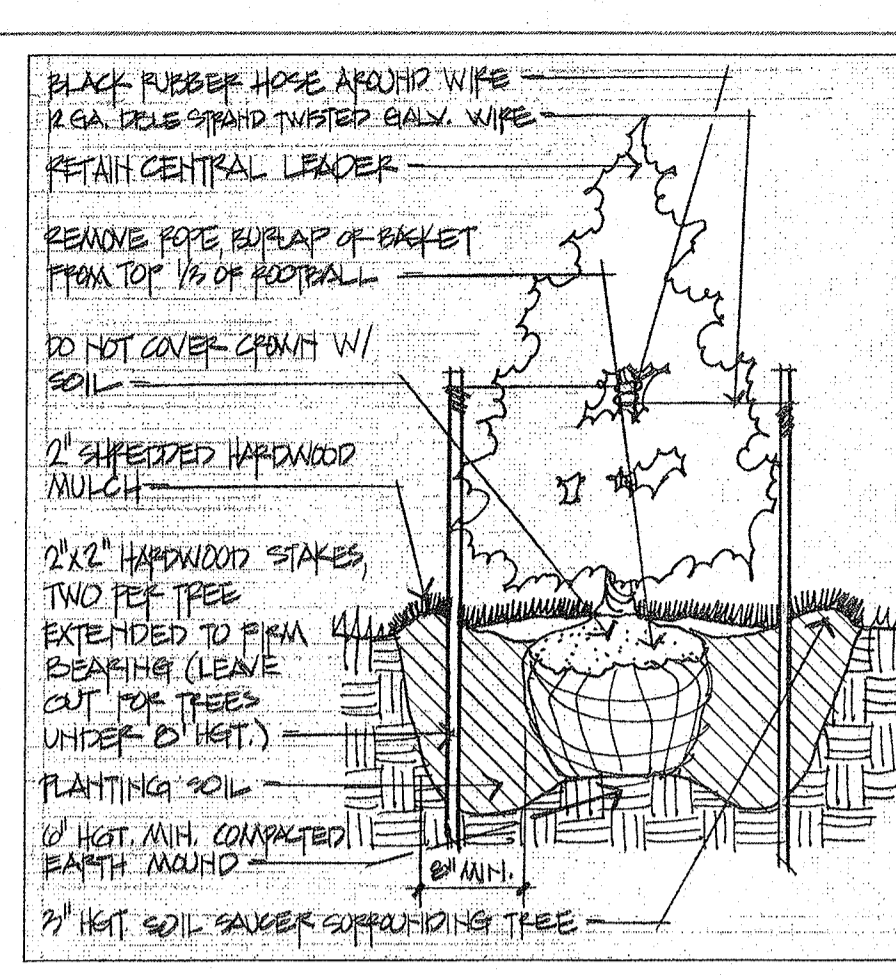 BLACK RUBBER HOSE AROUND WIRE
12 GA. DBLE STRAND TWISTED GALV. WIRE
RETAIN CENTRAL LEADER
REMOVE ROPE, BURLAP OR BASKET
FROM TOP 1/3 OF ROOTBALL
DO NOT COVER CROWN W/
SOIL
2" SHREDDED HARDWOOD
MULCH
2"X2" HARDWOOD STAKES,
TWO PER TREE
EXTENDED TO FIRM
BEARING (LEAVE
OUT FOR TREES
UNDER 8' HGT.)
PLANTING SOIL
6" HGT. MIN. COMPACTED
EARTH MOUND
8" MIN.
3" HGT. SOIL SAUCER SURROUNDING TREE